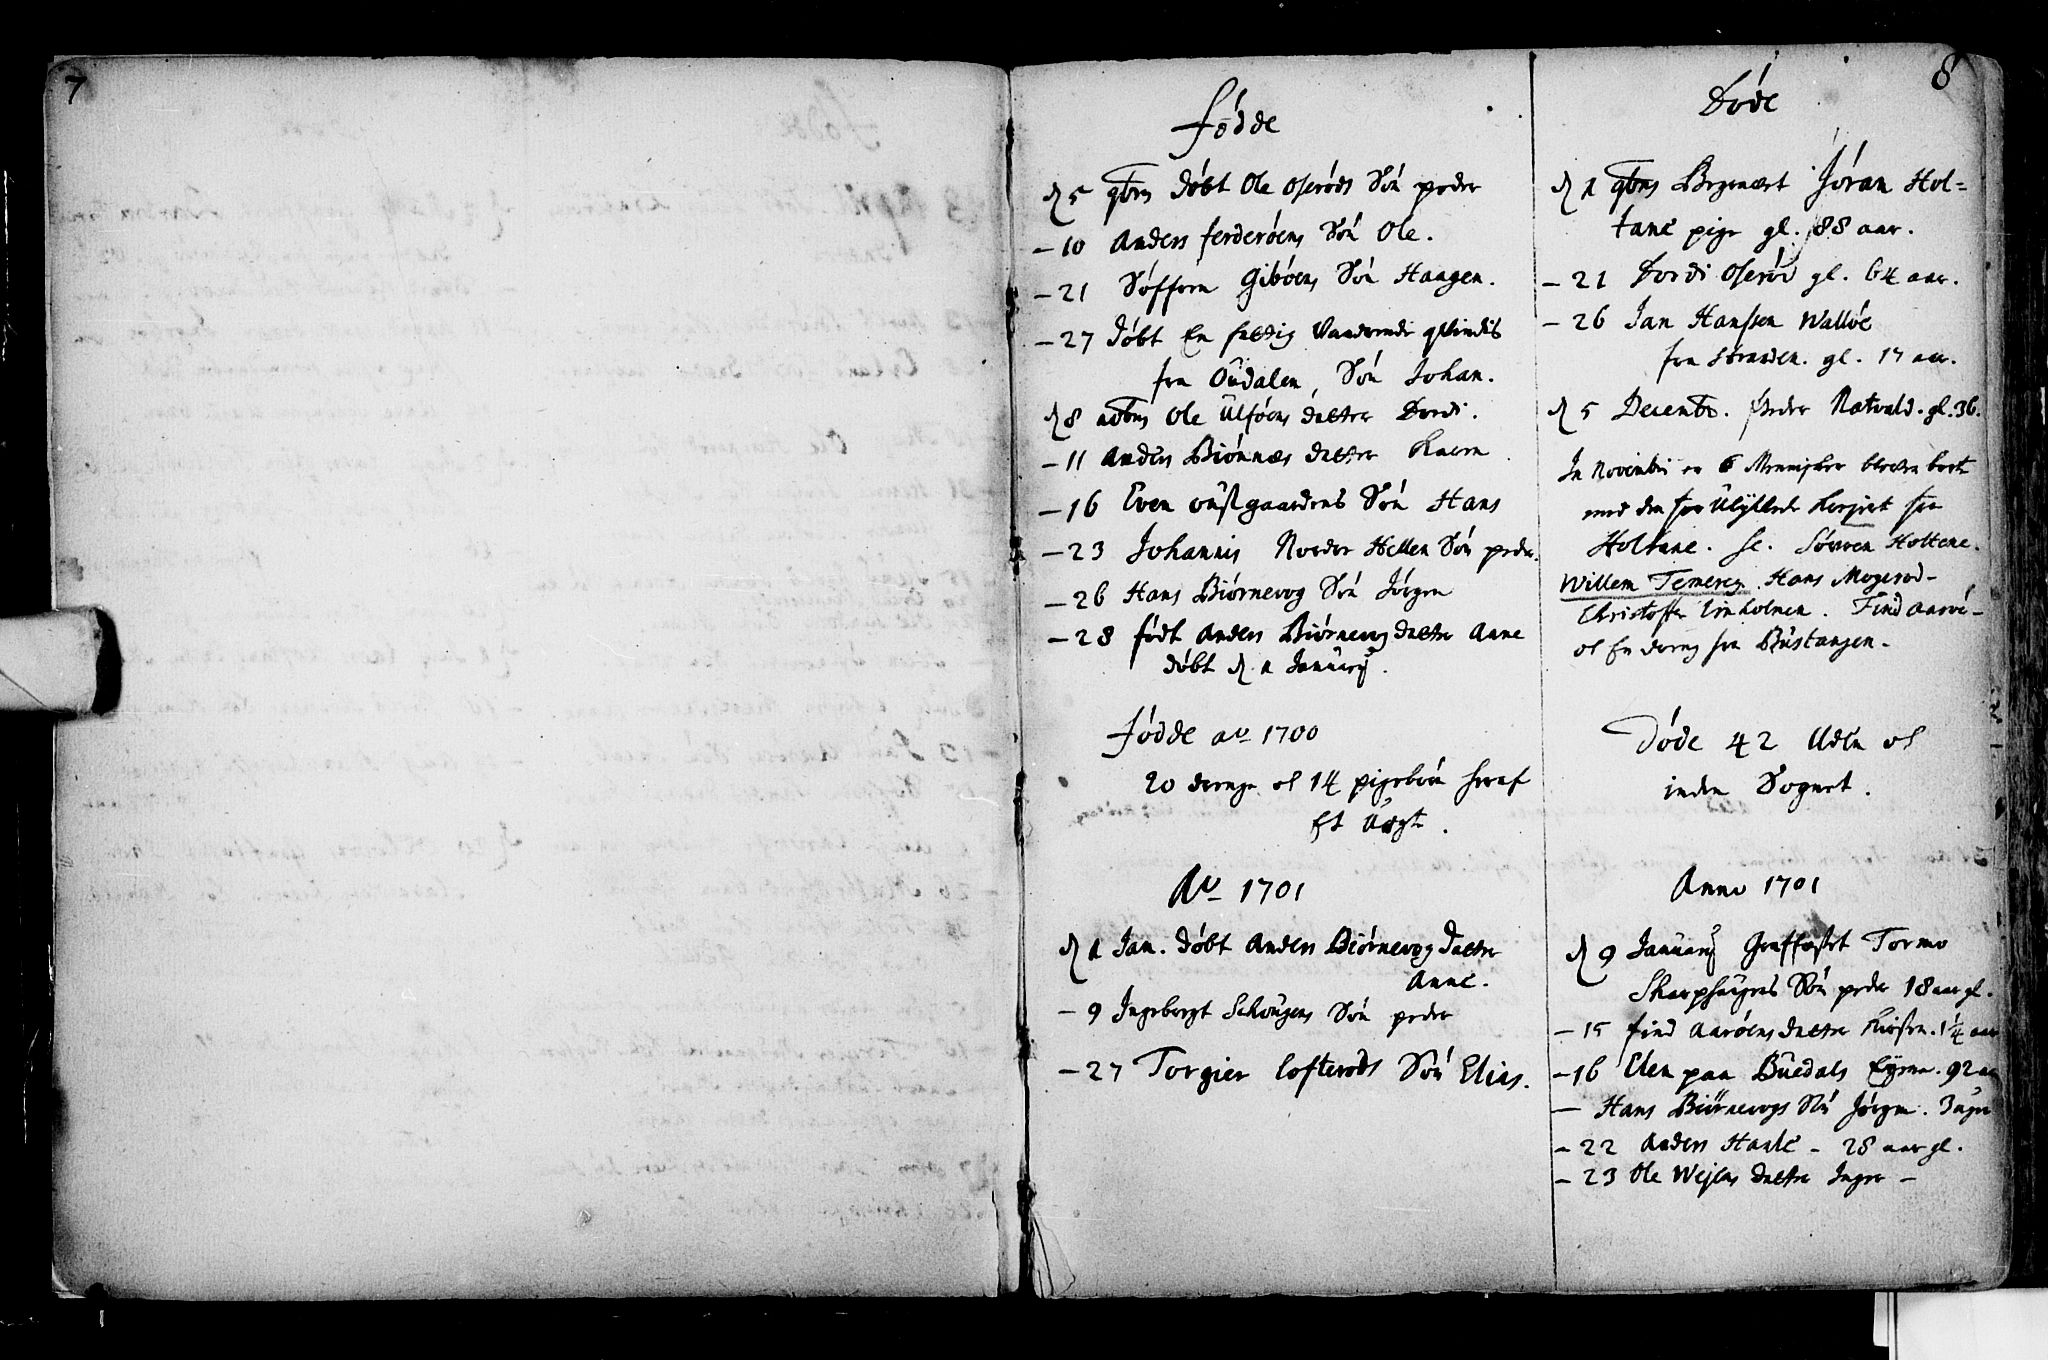 7
8
Fódde
d 5 9brs dóbt Ole Oseróds Són peder
- 10 Anders ferderóens Són Ole.
- 21 Sóffren Gibóens Són Haagen.
- 27 dóbt En fattig Vandrende qvindis
fra Oudalen, Són Johan.
d 8 xbrs Ole Ulfóens datter Dordi.
- 11 Anders Biónnæs datter Karen
- 16 Even Oustgaardens Són Hans
- 23 Johannis Nordre Hellen Són peder.
- 26 Hans Biórnevog Són Jórgen
- 28 fódt Anders Biórnevog datter Anne
dóbt d 1 Januarij.
Fódde ao 1700
20 drenge og 14 pigebórn heraf
Et Uægte.
Ao 1701
d 1 Jan. dóbt Anders Biórnevog datter
Anne.
- 9 Ingebregt Schougens Són peder
- 27 Torgier lofterods Són Elias.
Dóde
d 1 9brs Begravet Jóran Hol=
tane pige gl. 88 aar.
- 21 Dordi Oseród gl. 64 aar.
- 26 Jan Hanssen Wallóe
fra stranden. gl. 17 aar.
d 5 Decembr. Peder Røtvald. gl. 36.
In Novembri er 6 Mennisker blevne borte
med den for Ulykkede Kreiert fra
Holtane. sc. Sóvren Holtene.
Willem Temereg. Hans Mogerod-
Christoffer Linholmen. Find Aaróe-
og En dreng fra Bústangen.
Dóde 42 Uden og
inden Sognet.
Anno 1701
d 9 Januarij Graffæstet Tormo
Skarphugens Són peder 18 aar gl.
- 15 find Aaróens datter Kirsten. 1¼ aar
- 16 Elen paa Búedals Eyene. 92 aar
- Hans Biórnevogs Són Jórgen. 3 uger
- 22 Anders Haale - 28 aar gl.
- 23 Ole Wejlas datter Inger -